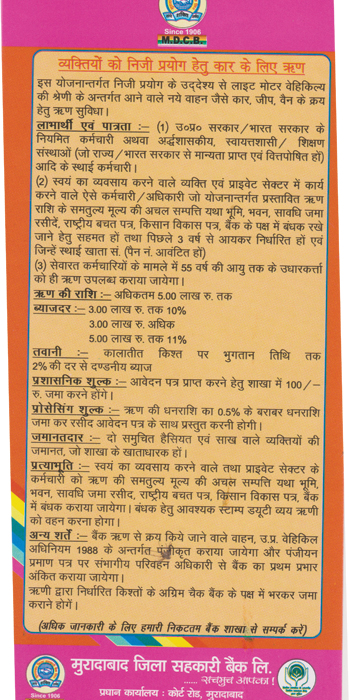 Since 1906
M.D.C.B.
व्यक्तियों को निजी प्रयोग हेतु कार के लिए ऋण
इस योजनान्तर्गत निजी प्रयोग के उद्देश्य से लाइट मोटर वेहिकिल्य
की श्रेणी के अन्तर्गत आने वाले नये वाहन जैसे कार, जीप, वैन के क्रय
हेतु ऋण सुविधा।
लाभार्थी एवं पात्रता :– (1) उ०प्र० सरकार/भारत सरकार के
नियमित कर्मचारी अथवा अर्द्धशासकीय, स्वायत्तशासी/ शिक्षण
संस्थाओं (जो राज्य/भारत सरकार से मान्यता प्राप्त एवं वित्तपोषित हों)
आदि के स्थाई कर्मचारी।
(2) स्वयं का व्यवसाय करने वाले व्यक्ति एवं प्राइवेट सेक्टर में कार्य
करने वाले ऐसे कर्मचारी/अधिकारी जो योजनान्तर्गत प्रस्तावित ऋण
राशि के समतुल्य मूल्य की अचल सम्पत्ति यथा भूमि, भवन, सावधि जमा
रसीदें, राष्ट्रीय बचत पत्र, किसान विकास पत्र, बैंक के पक्ष में बंधक रखे
जाने हेतु सहमत हों तथा पिछले 3 वर्ष से आयकर निर्धारित हों एवं
जिन्हें स्थाई खाता सं. (पैन नं. आवंटित हों)
(3) सेवारत कर्मचारियों के मामले में 55 वर्ष की आयु तक के उधारकर्त्ता
को ही ऋण उपलब्ध कराया जायेगा।
ऋण की राशि :– अधिकतम 5.00 लाख रु. तक
ब्याजदर :– 3.00 लाख रु. तक 10%
3.00 लाख रु. अधिक
5.00 लाख रु. तक 11%
तवानी :– कालातीत किश्त पर भुगतान तिथि तक
2% की दर से दण्डनीय ब्याज
प्रशासनिक शुल्क :– आवेदन पत्र प्राप्त करने हेतु शाखा में 100/–
रु. जमा करने होंगे।
प्रोसेसिंग शुल्क :– ऋण की धनराशि का 0.5% के बराबर धनराशि
जमा कर रसीद आवेदन पत्र के साथ प्रस्तुत करनी होगी।
जमानतदार :– दो समुचित हैसियत एवं साख वाले व्यक्तियों की
जमानत, जो शाखा के खाताधारक हों।
प्रत्याभूति :– स्वयं का व्यवसाय करने वाले तथा प्राइवेट सेक्टर के
कर्मचारी को ऋण की समतुल्य मूल्य की अचल सम्पत्ति यथा भूमि,
भवन, सावधि जमा रसीद, राष्ट्रीय बचत पत्र, किसान विकास पत्र, बैंक
में बंधक कराया जायेगा। बंधक हेतु आवश्यक स्टाम्प डयूटी व्यय ऋणी
को वहन करना होगा।
अन्य शर्तें :– बैंक ऋण से क्रय किये जाने वाले वाहन, उ.प्र. वेहिकिल
अधिनियम 1988 के अन्तर्गत पंजीकृत कराया जायेगा और पंजीयन
प्रमाण पत्र पर संभागीय परिवहन अधिकारी से बैंक का प्रथम प्रभार
अंकित कराया जायेगा।
ऋणी द्वारा निर्धारित किश्तों के अग्रिम चैक बैंक के पक्ष में भरकर जमा
कराने होगें।
(अधिक जानकारी के लिए हमारी निकटतम बैंक शाखा से सम्पर्क करें)
मुरादाबाद जिला सहकारी बैंक लि.
...... सचमुच आपका!
Since 1906
प्रधान कार्यालय : कोर्ट रोड, मुरादाबाद